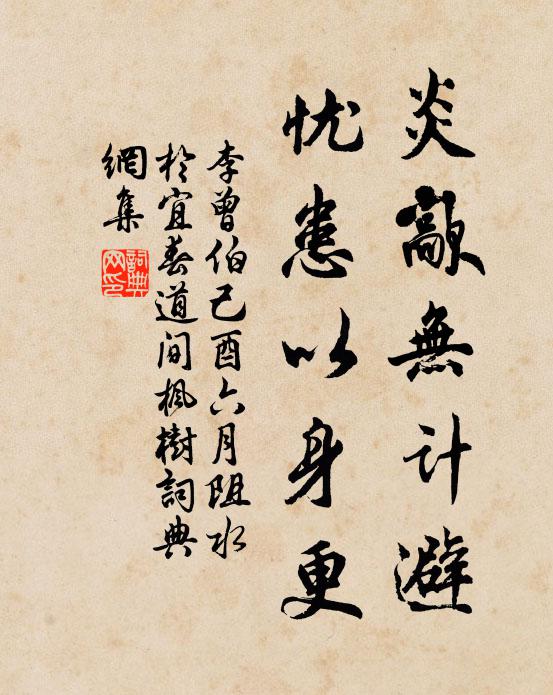 炎敲無計避
忧患以身更
李曾伯己酉六月阻水
於宜春道间枫樹詞典
網集
詞典网印